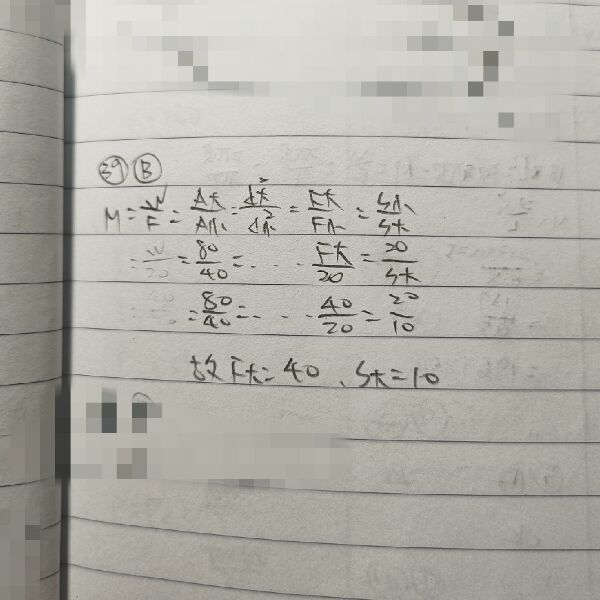 39 B
M = W/F = A大/A小 = d大²/d小² = F大/F小 = S小/S大
= W/20 = 80/40 = ... F大/20 = 20/S大
= 80/40 = ... 40/20 = 20/10
故F大=40、S大=10